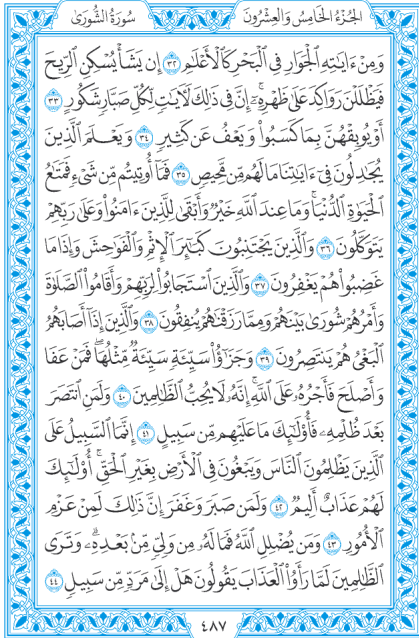 الجُزْءُ الخَامِسُ وَالعِشْرُونَ سُورَةُ الشُّورَىٰ
وَمِنْ ءَايَٰتِهِ ٱلْجَوَارِ فِى ٱلْبَحْرِ كَٱلْأَعْلَٰمِ ٣٢ إِن يَشَأْ يُسْكِنِ ٱلرِّيحَ
فَيَظْلَلْنَ رَوَاكِدَ عَلَىٰ ظَهْرِهِۦٓ ۚ إِنَّ فِى ذَٰلِكَ لَءَايَٰتٍ لِّكُلِّ صَبَّارٍ شَكُورٍ ٣٣
أَوْ يُوبِقْهُنَّ بِمَا كَسَبُوا۟ وَيَعْفُ عَن كَثِيرٍ ٣٤ وَيَعْلَمَ ٱلَّذِينَ
يُجَٰدِلُونَ فِىٓ ءَايَٰتِنَا مَا لَهُم مِّن مَّحِيصٍ ٣٥ فَمَآ أُوتِيتُم مِّن شَىْءٍ فَمَتَٰعُ
ٱلْحَيَوٰةِ ٱلدُّنْيَا ۖ وَمَا عِندَ ٱللَّهِ خَيْرٌ وَأَبْقَىٰ لِلَّذِينَ ءَامَنُوا۟ وَعَلَىٰ رَبِّهِمْ
يَتَوَكَّلُونَ ٣٦ وَٱلَّذِينَ يَجْتَنِبُونَ كَبَٰٓئِرَ ٱلْإِثْمِ وَٱلْفَوَٰحِشَ وَإِذَا مَا
غَضِبُوا۟ هُمْ يَغْفِرُونَ ٣٧ وَٱلَّذِينَ ٱسْتَجَابُوا۟ لِرَبِّهِمْ وَأَقَامُوا۟ ٱلصَّلَوٰةَ
وَأَمْرُهُمْ شُورَىٰ بَيْنَهُمْ وَمِمَّا رَزَقْنَٰهُمْ يُنفِقُونَ ٣٨ وَٱلَّذِينَ إِذَآ أَصَابَهُمُ
ٱلْبَغْىُ هُمْ يَنتَصِرُونَ ٣٩ وَجَزَٰٓؤُا۟ سَيِّئَةٍ سَيِّئَةٌ مِّثْلُهَا ۖ فَمَنْ عَفَا
وَأَصْلَحَ فَأَجْرُهُۥ عَلَى ٱللَّهِ ۚ إِنَّهُۥ لَا يُحِبُّ ٱلظَّٰلِمِينَ ٤٠ وَلَمَنِ ٱنتَصَرَ
بَعْدَ ظُلْمِهِۦ فَأُو۟لَٰٓئِكَ مَا عَلَيْهِم مِّن سَبِيلٍ ٤١ إِنَّمَا ٱلسَّبِيلُ عَلَى
ٱلَّذِينَ يَظْلِمُونَ ٱلنَّاسَ وَيَبْغُونَ فِى ٱلْأَرْضِ بِغَيْرِ ٱلْحَقِّ ۚ أُو۟لَٰٓئِكَ
لَهُمْ عَذَابٌ أَلِيمٌ ٤٢ وَلَمَن صَبَرَ وَغَفَرَ إِنَّ ذَٰلِكَ لَمِنْ عَزْمِ
ٱلْأُمُورِ ٤٣ وَمَن يُضْلِلِ ٱللَّهُ فَمَا لَهُۥ مِن وَلِىٍّ مِّنۢ بَعْدِهِۦ ۗ وَتَرَى
ٱلظَّٰلِمِينَ لَمَّا رَأَوُا۟ ٱلْعَذَابَ يَقُولُونَ هَلْ إِلَىٰ مَرَدٍّ مِّن سَبِيلٍ ٤٤
٤٨٧